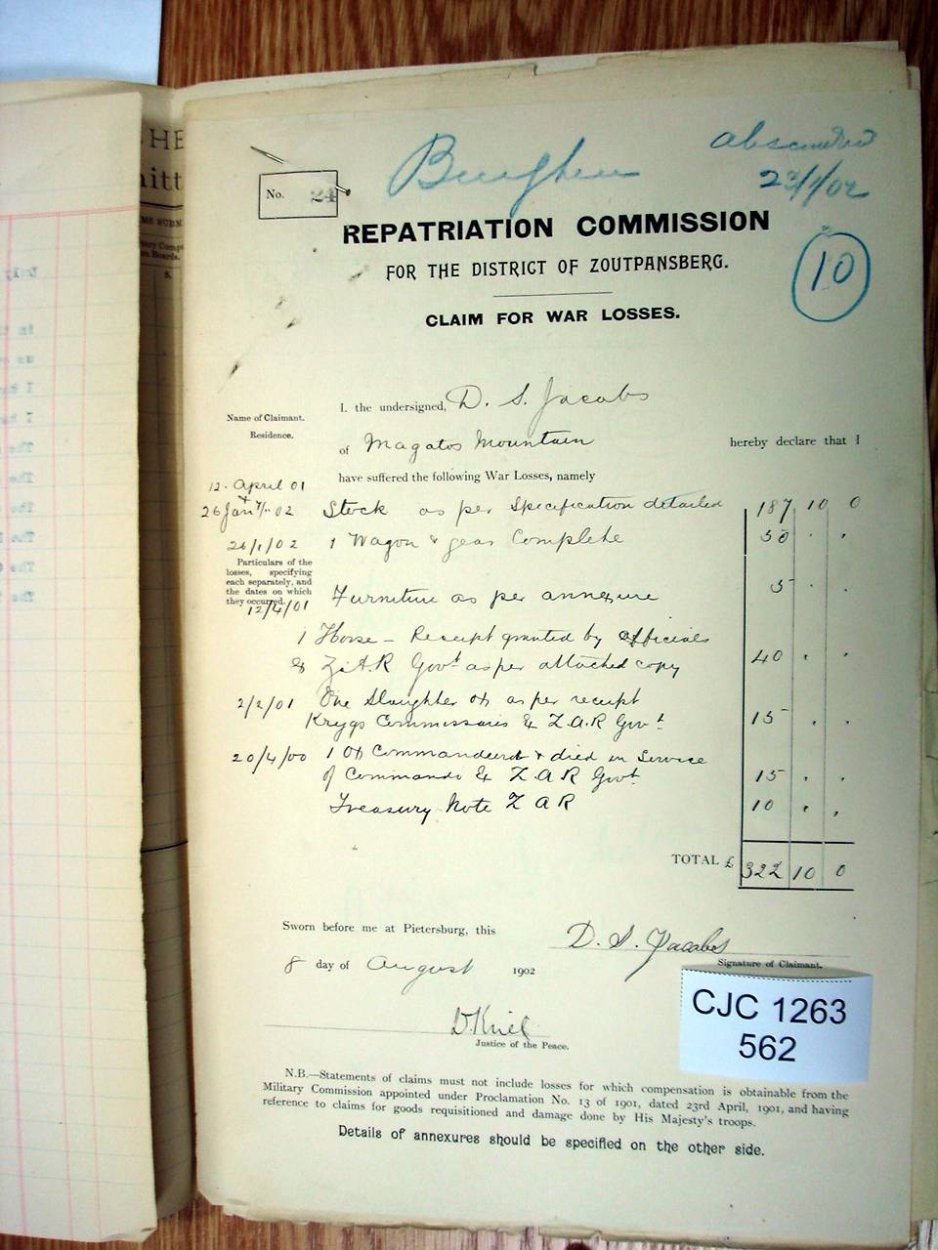 HE
itt
Burgher
23/1/02
No. 24
REPATRIATION COMMISSION
FOR THE DISTRICT OF ZOUTPANSBERG.
10
CLAIM FOR WAR LOSSES.
Name of Claimant.
I. the undersigned, D. S. Jacobs
Residence.
of Magatos Mountain hereby declare that I
have suffered the following War Losses, namely
12. April 01
26 Jany/- 02 Stock as per Specification detailed 187 10 0
26/1/02 1 Wagon & gear Complete 50 . .
Particulars of the
losses, specifying
each separately, and
the dates on which
they occurred.
12/4/01 Furniture as per annexure 5 . .
1 Horse - Receipt granted by officials
Z.A.R Govt as per attached copy 40 . .
2/2/01 One Slaughter ox as per receipt
Krygs Commissaris Z.A.R Govt 15 . .
20/4/00 1 Ox Commandeered & died in Service
of Commando Z A R Govt 15 . .
Treasury Note Z A R 10 . .
TOTAL £ 322 10 0
Sworn before me at Pietersburg, this
D. S. Jacobs
Signature of Claimant.
8 day of August 1902
D Kriel
Justice of the Peace.
CJC 1263
562
N.B.—Statements of claims must not include losses for which compensation is obtainable from the
Military Commission appointed under Proclamation No. 13 of 1901, dated 23rd April, 1901, and having
reference to claims for goods requisitioned and damage done by His Majesty's troops.
Details of annexures should be specified on the other side.